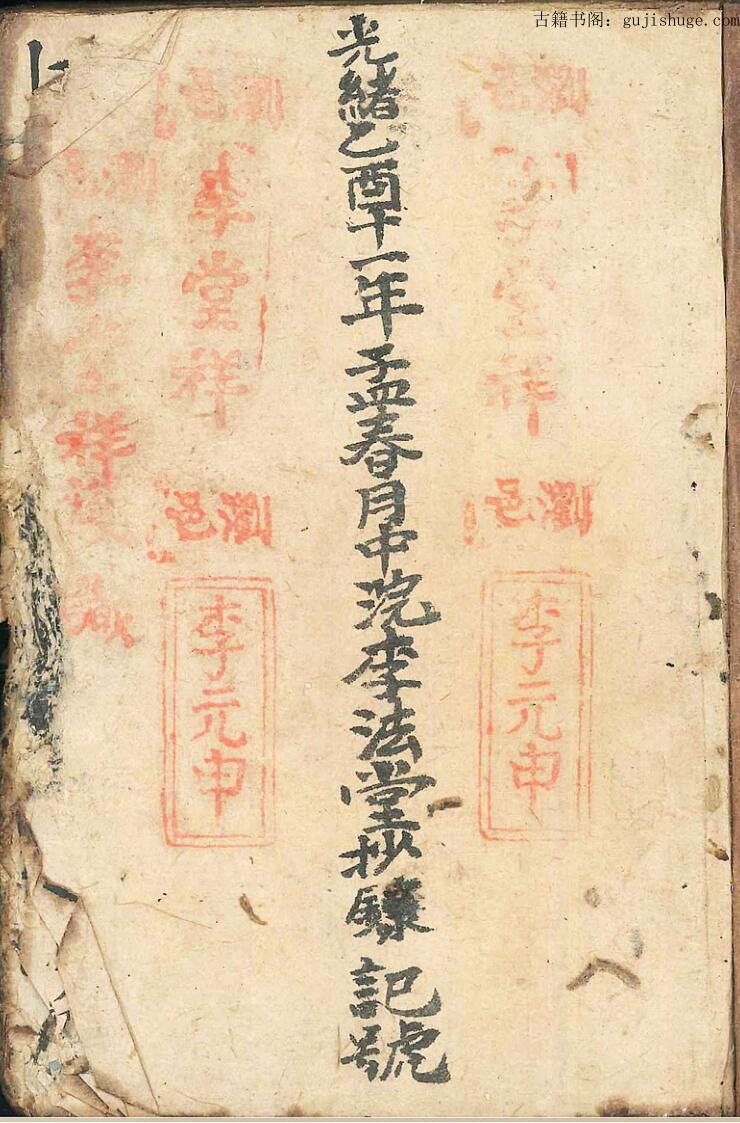 古籍书阁：gujishuge.com
瀏邑
李堂祥
瀏邑
李元申
光緒乙酉十一年孟春月中浣李法堂抄錄記號
瀏邑
李堂祥
瀏邑
李元申
瀏邑
李堂祥